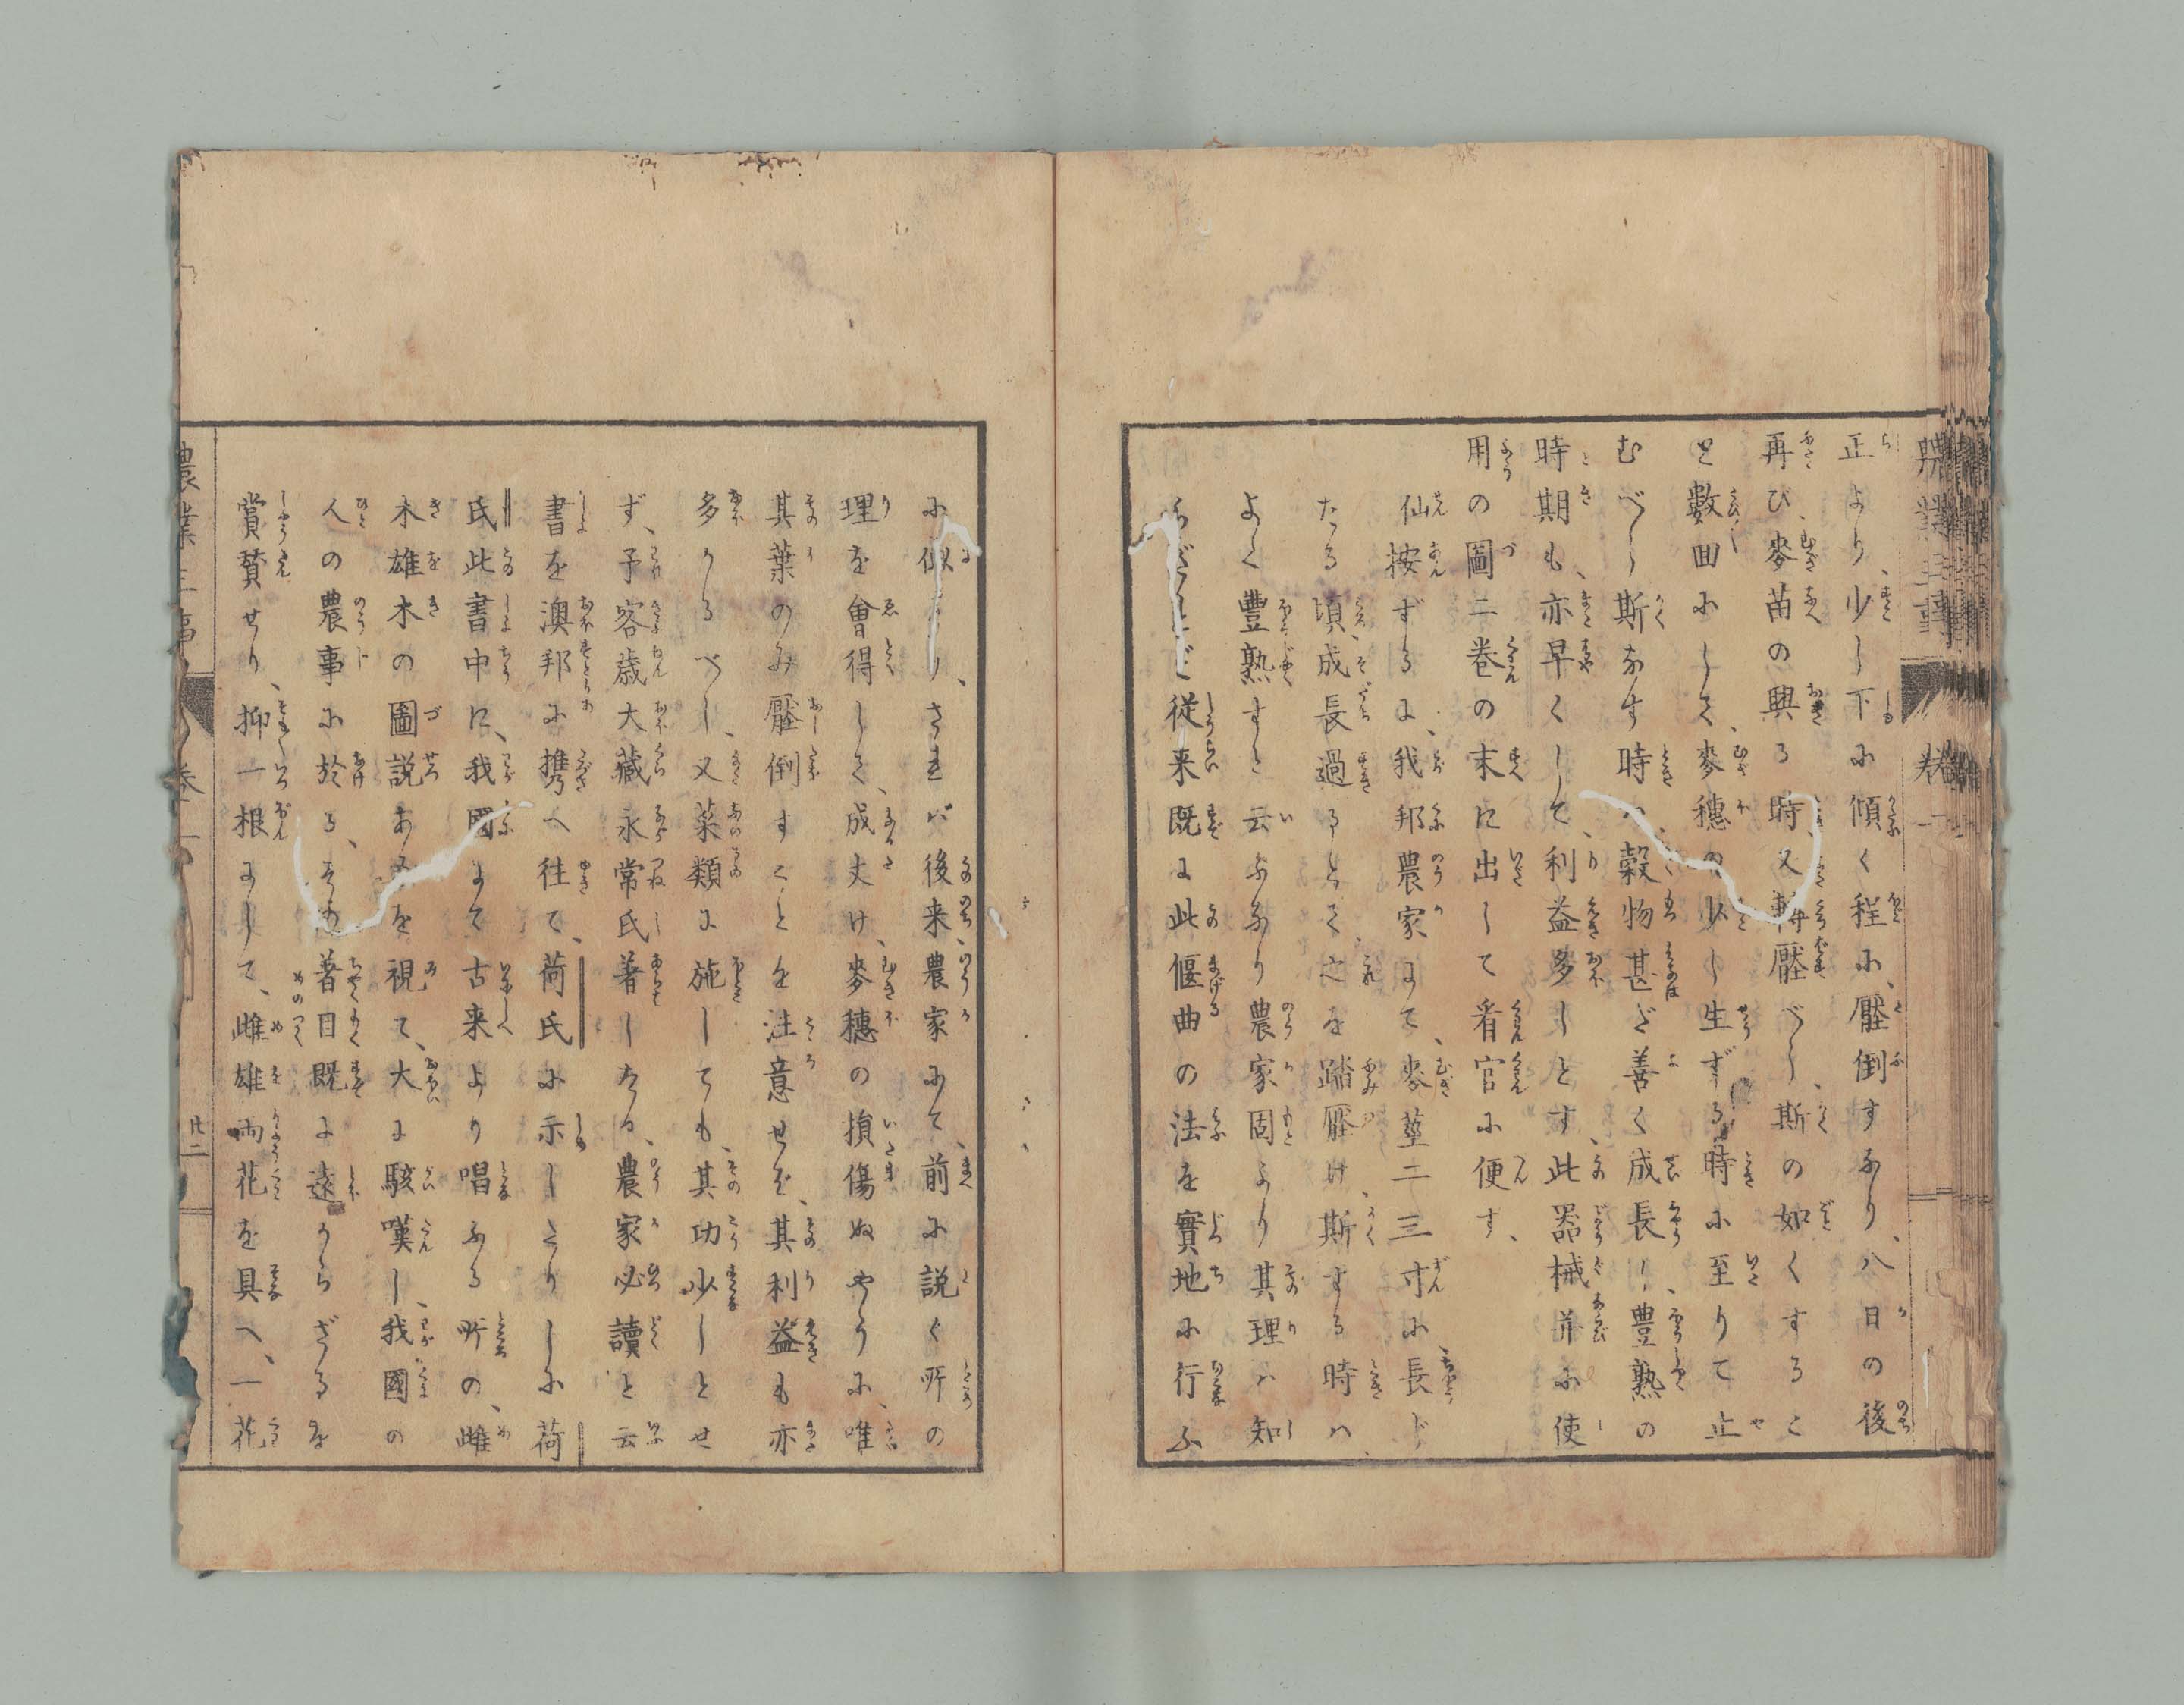 正より、少し下に傾く程に、壓倒すなり、八日の後
再び、麥苗の興る時、又轉壓べし、斯の如くするこ
と數回にして、麥穗の少し生ずる時に至りて止
むべし斯なす時ハ、穀物甚だ善く成長し、豊熟の
時期も、亦早くして、利益多しとす、此器械并に使
用の圖二卷の末に出して看官に便す、
仙按ずるに、我邦農家にて、麥莖二三寸に長じ
たる頃、成長過るとて、之を踏壓け、斯する時ハ、
よく豊熟すと云ふなり農家固より其理ハ知
らざれど従来既に此偃曲の法を實地に行ふ
に似たり、されバ後来、農家にて、前に説く所の
理を會得して、成丈け、麥穗の損傷ぬやうに、唯
其葉のみ壓倒すことを注意せバ、其利益も亦
多かるべし、又菜類に施しても、其功少しとせ
ず、予客歳大藏永常氏著したる、農家必讀と云
書を澳邦に携へ往て、荷氏に示したりしに荷
氏此書中に、我國にて古来より唱ふる所の、雌
木雄木の圖説あるを視て、大に駭嘆し、我國の
人の農事に於る、その着目既に遠からざるを
賞賛せり、抑一根にして、雌雄両花を具へ、一花
農業三事
卷一
廿二